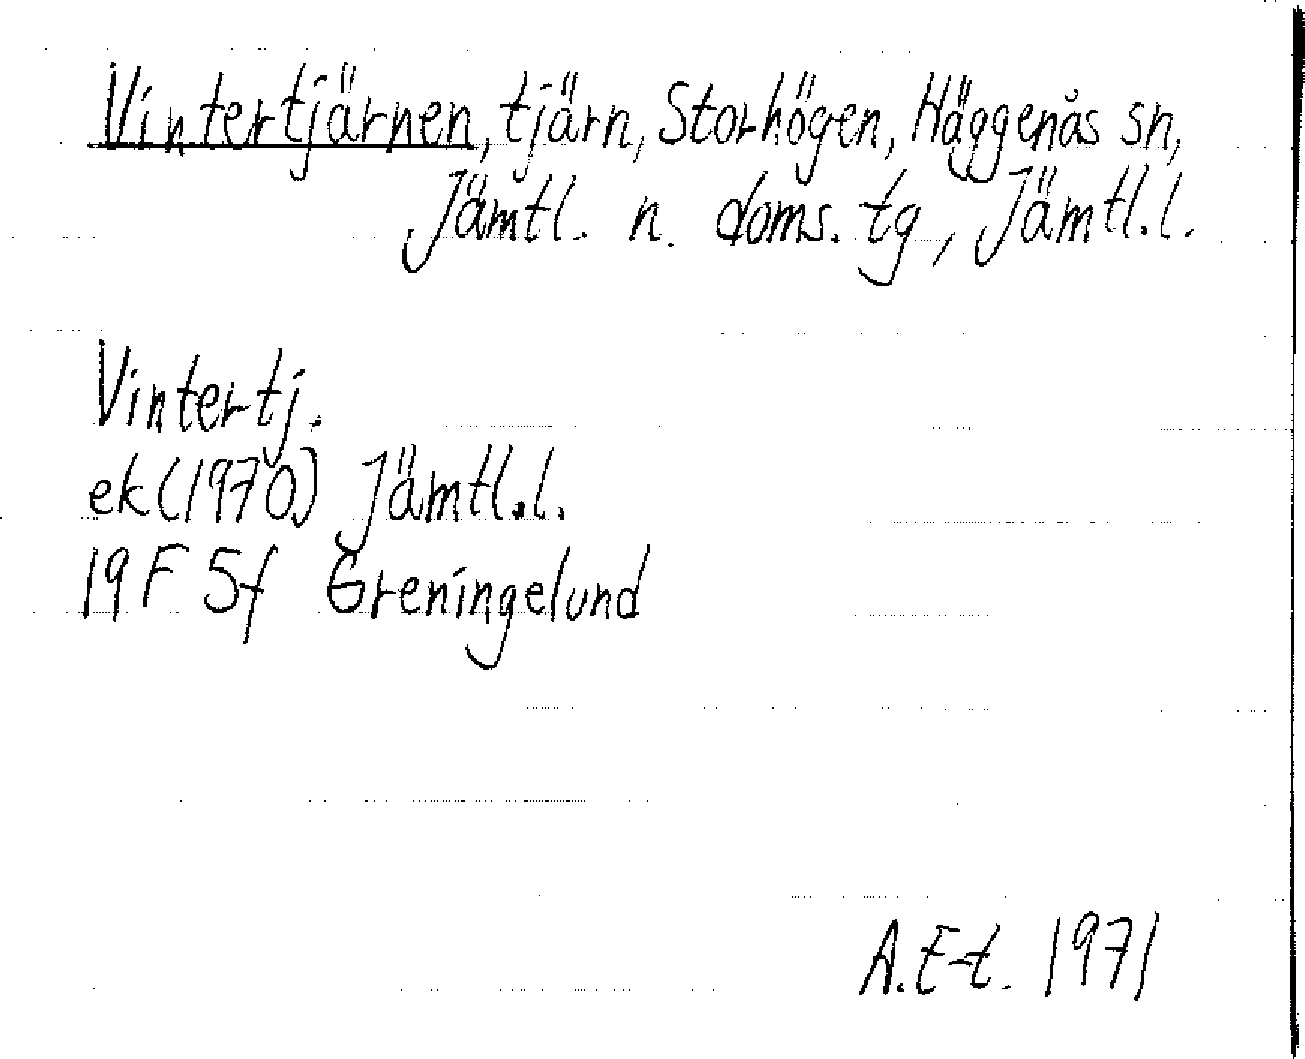 Vintertjärnen, tjärn, Storhögen, Häggenås sn,
Jämtl. n. doms. tg, Jämtl.l.
Vintertj.
ek (1970) Jämtl.l.
19 F 5f Greningelund
A.E-t. 1971